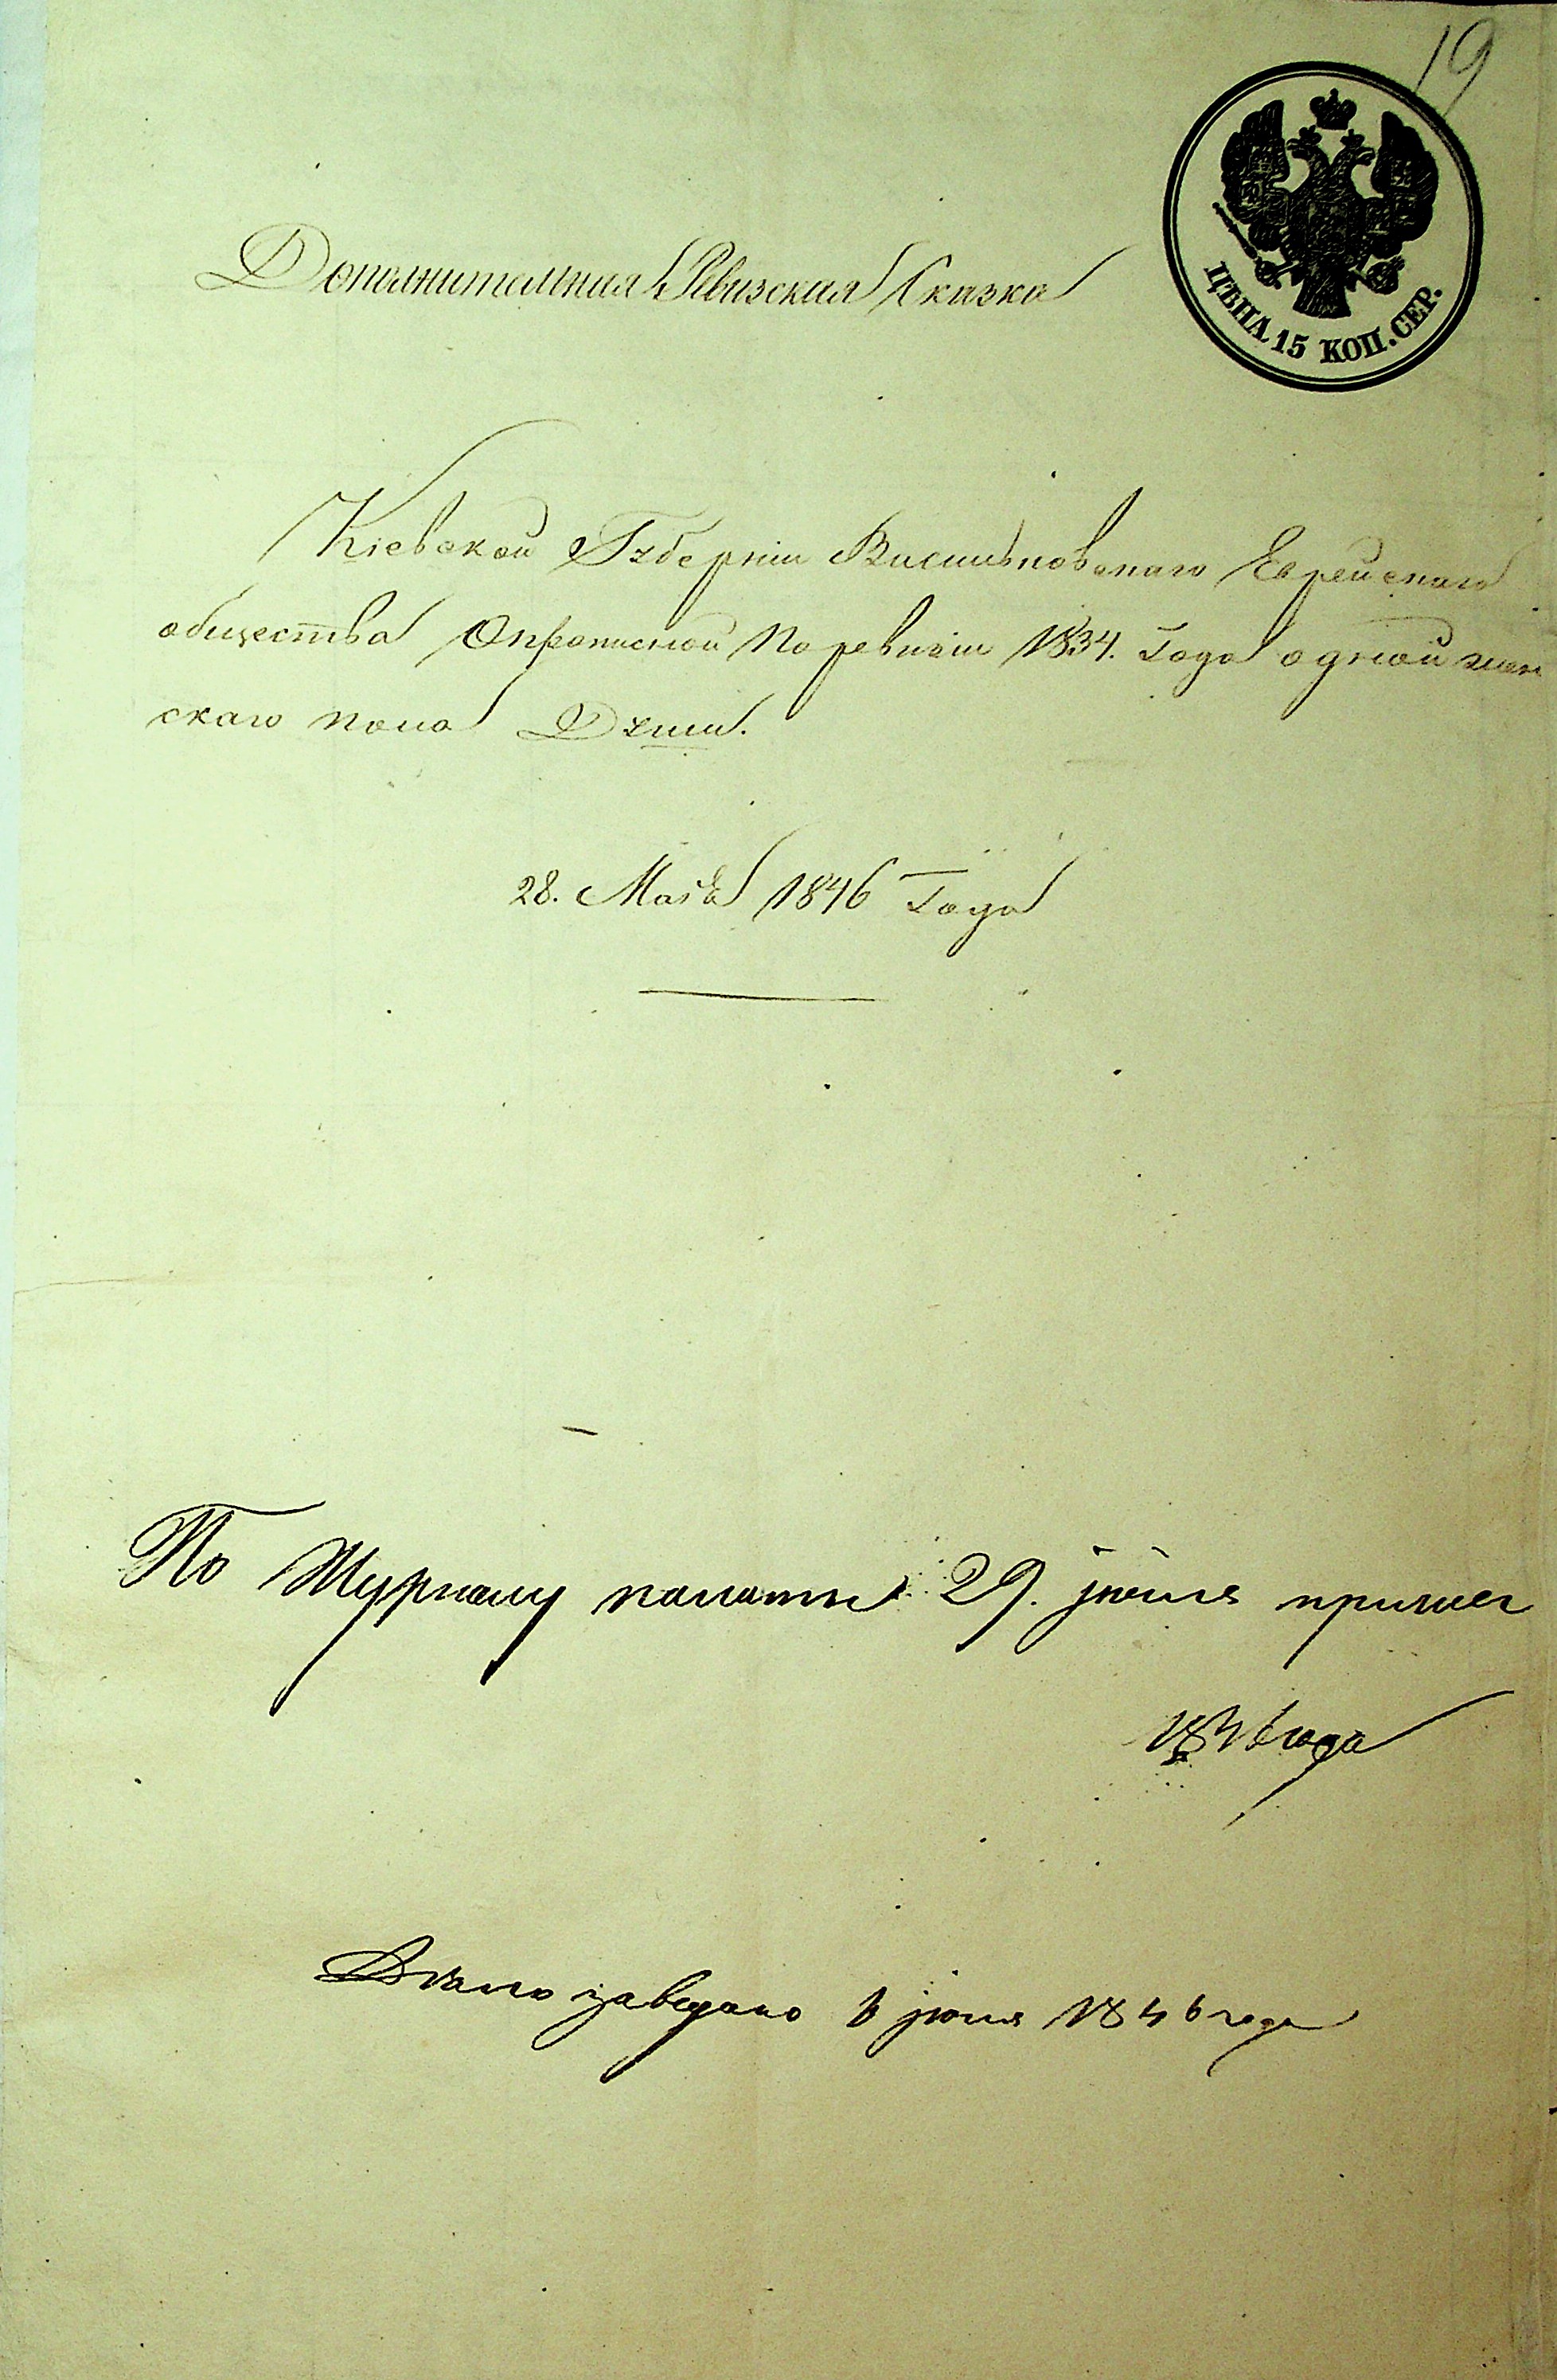 19
ЦѢНА 15 КОП. СЕР.
Дополнительная Ревизская Сказка
Кіевской Губерніи Васильковскаго Еврейскаго
общества О прописной по ревизіи 1834. Года одной жен
скаго пола Души.
28. Маія 1846 Года
По Журналу палаты 29. іюля
1846 года
заведано 6 іюня 1846 года